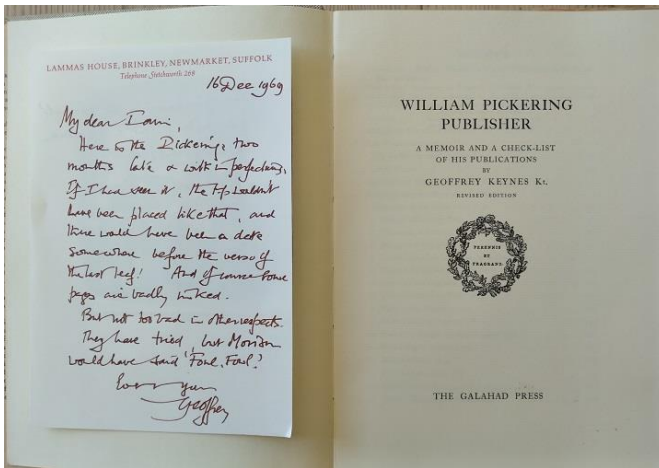 LAMMAS HOUSE, BRINKLEY, NEWMARKET, SUFFOLK
Telephone Stetchworth 268
16 Dec 1969
My dear
Here is the Pickering, two
months late & with imperfections.
If I had seen it, the t-p wouldn't
have been placed like that, and
there would have been a date
somewhere before the verso of
the last leaf! And of course some
pages are badly inked.
But not too bad in other respects.
They have tried, but Morison
would have said 'Foul, Foul'!
Geoffrey
WILLIAM PICKERING
PUBLISHER
A MEMOIR AND A CHECK-LIST
OF HIS PUBLICATIONS
BY
GEOFFREY KEYNES Kt.
REVISED EDITION
PERENNIS
ET
FRAGRANS.
THE GALAHAD PRESS